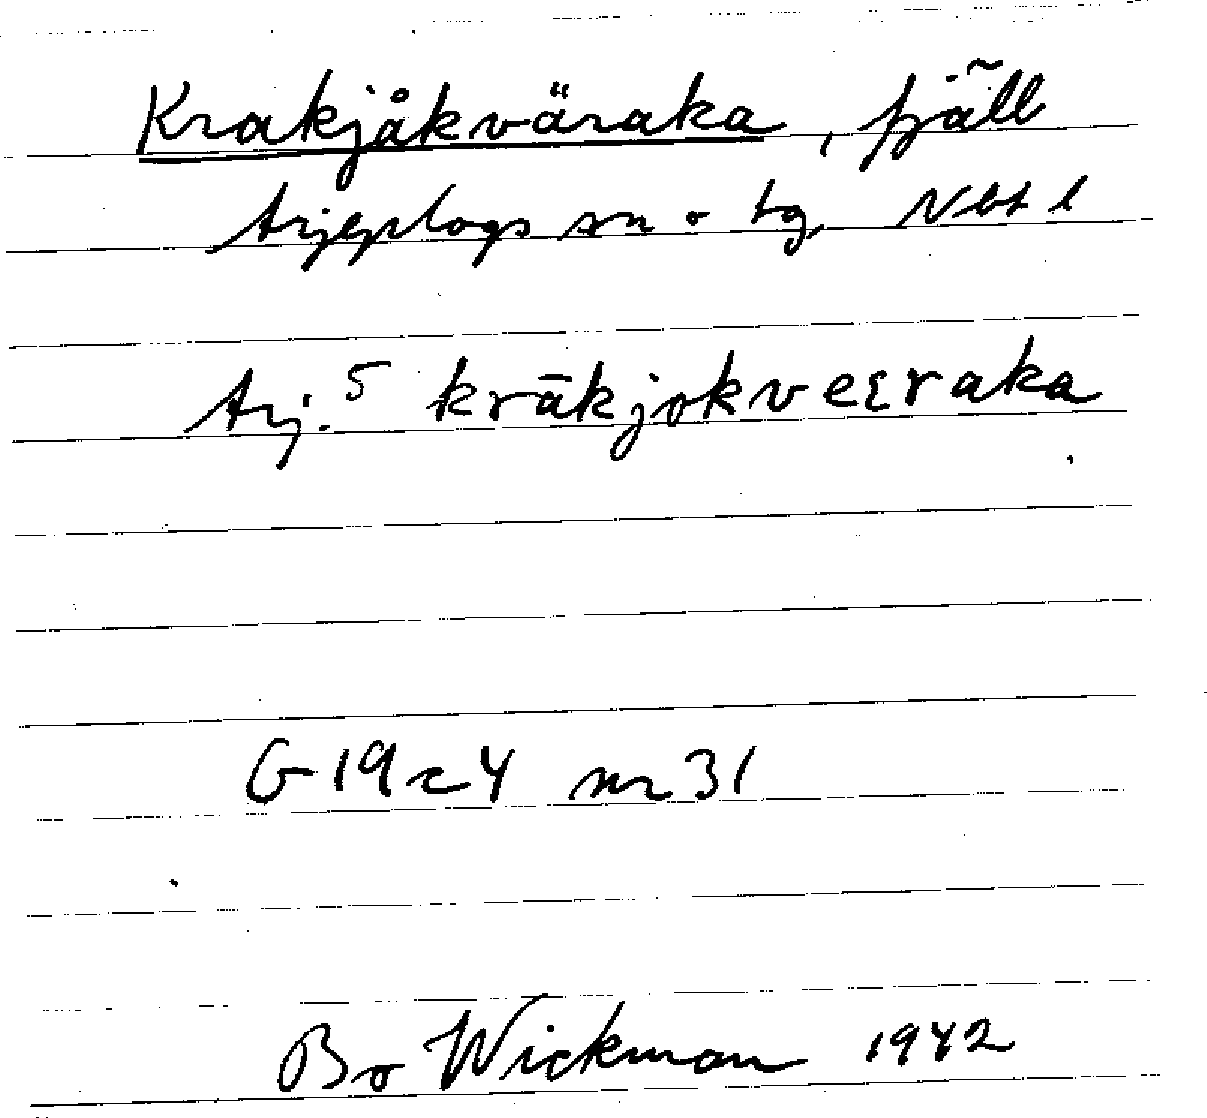 Krakjåkväraka, fjäll
Arjeplogs sn o tg, Nbt l
Arj.⁵ krākjokveɛraka
G 19 c 4 nr 31
Bo Wickman 1942